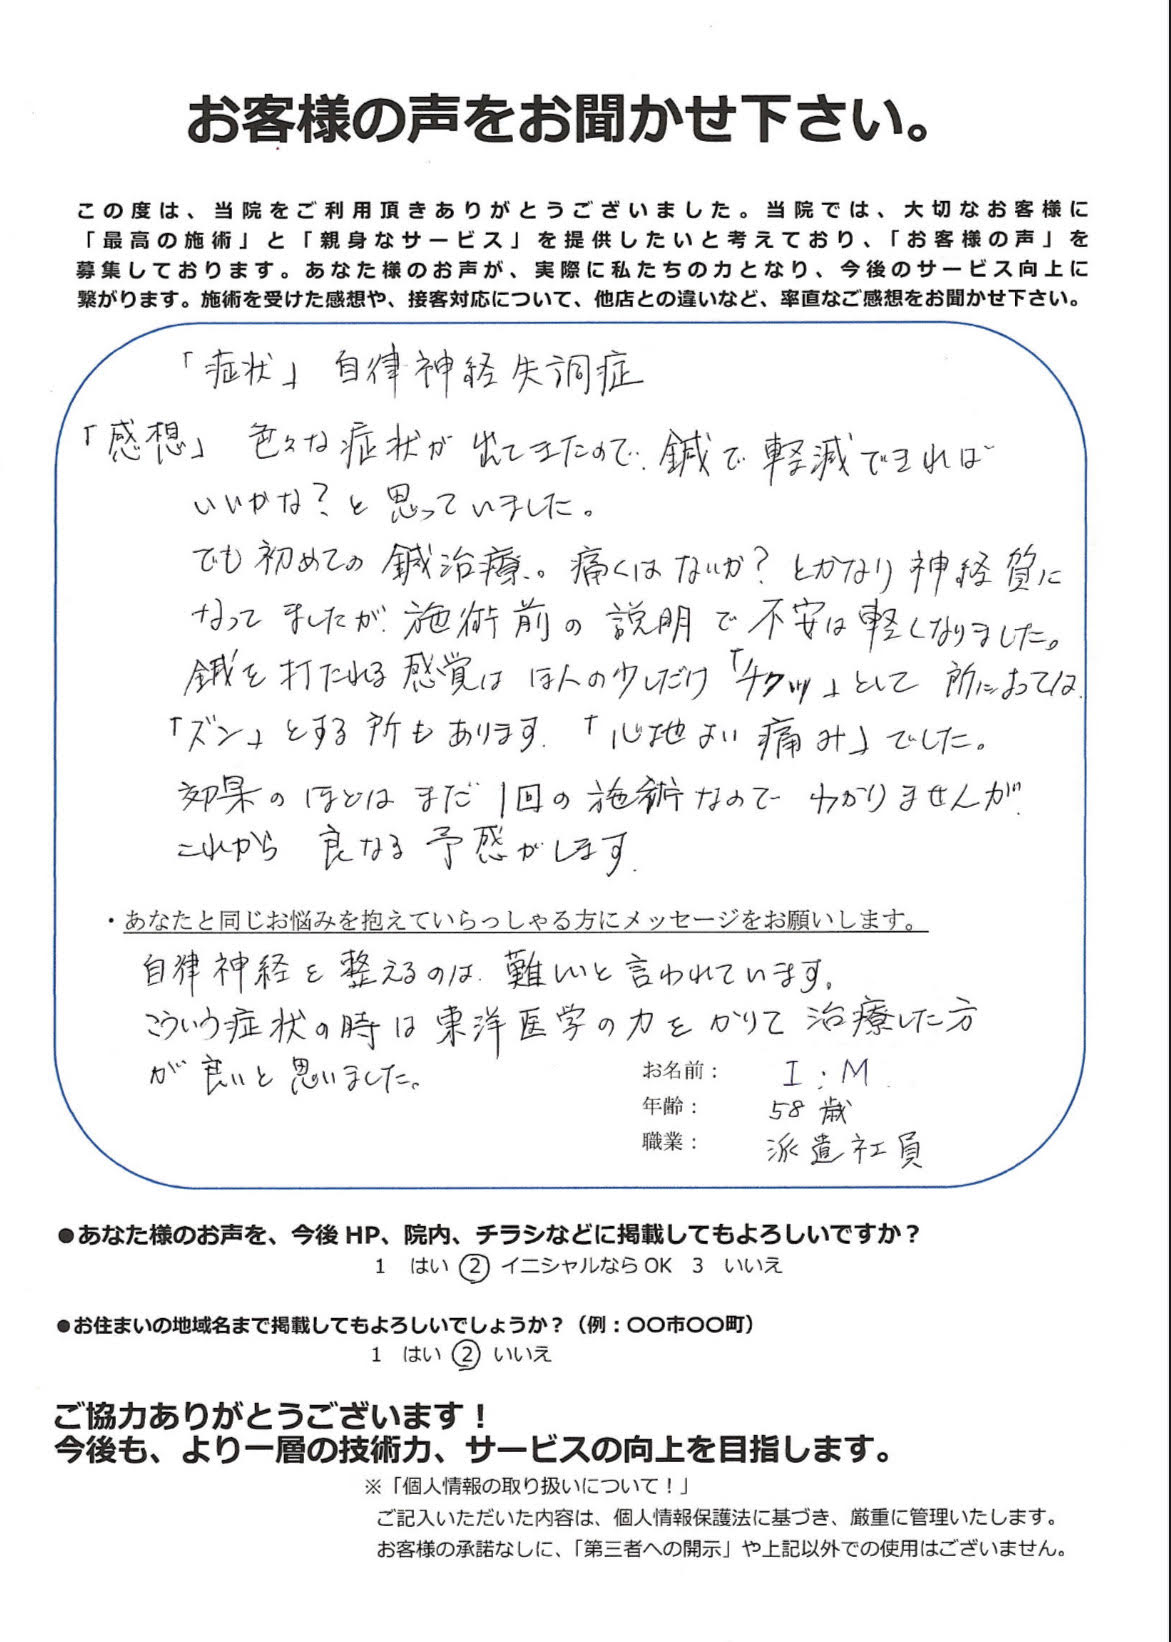 お客様の声をお聞かせ下さい。
この度は、当院をご利用頂きありがとうございました。当院では、大切なお客様に
「最高の施術」と「親身なサービス」を提供したいと考えており、「お客様の声」を
募集しております。あなた様のお声が、実際に私たちの力となり、今後のサービス向上に
繋がります。施術を受けた感想や、接客対応について、他店との違いなど、率直なご感想をお聞かせ下さい。
「症状」 自律神経失調症
「感想」 色々な症状が出てきたので、鍼で軽減できれば
いいかな?と思っていました。
でも初めての鍼治療。痛くはないか?とかなり神経質に
なってましたが、施術前の説明で不安は軽くなりました。
鍼を打たれる感覚はほんの少しだけ「チクッ」として 所によっては、
「ズン」とする所もあります。「心地よい痛み」でした。
効果のほどはまだ1回の施術なのでわかりませんが、
これから良なる予感がします。
・あなたと同じお悩みを抱えていらっしゃる方にメッセージをお願いします。
自律神経を整えるのは、難しいと言われています。
こういう症状の時は東洋医学の力をかりて治療した方
が良いと思いました。
お名前： I.M.
年齢： 58歳
職業： 派遣社員
●あなた様のお声を、今後HP、院内、チラシなどに掲載してもよろしいですか？
1 はい ② イニシャルならOK 3 いいえ
●お住まいの地域名まで掲載してもよろしいでしょうか？（例：〇〇市〇〇町）
1 はい ② いいえ
ご協力ありがとうございます！
今後も、より一層の技術力、サービスの向上を目指します。
※「個人情報の取り扱いについて！」
ご記入いただいた内容は、個人情報保護法に基づき、厳重に管理いたします。
お客様の承諾なしに、「第三者への開示」や上記以外での使用はございません。